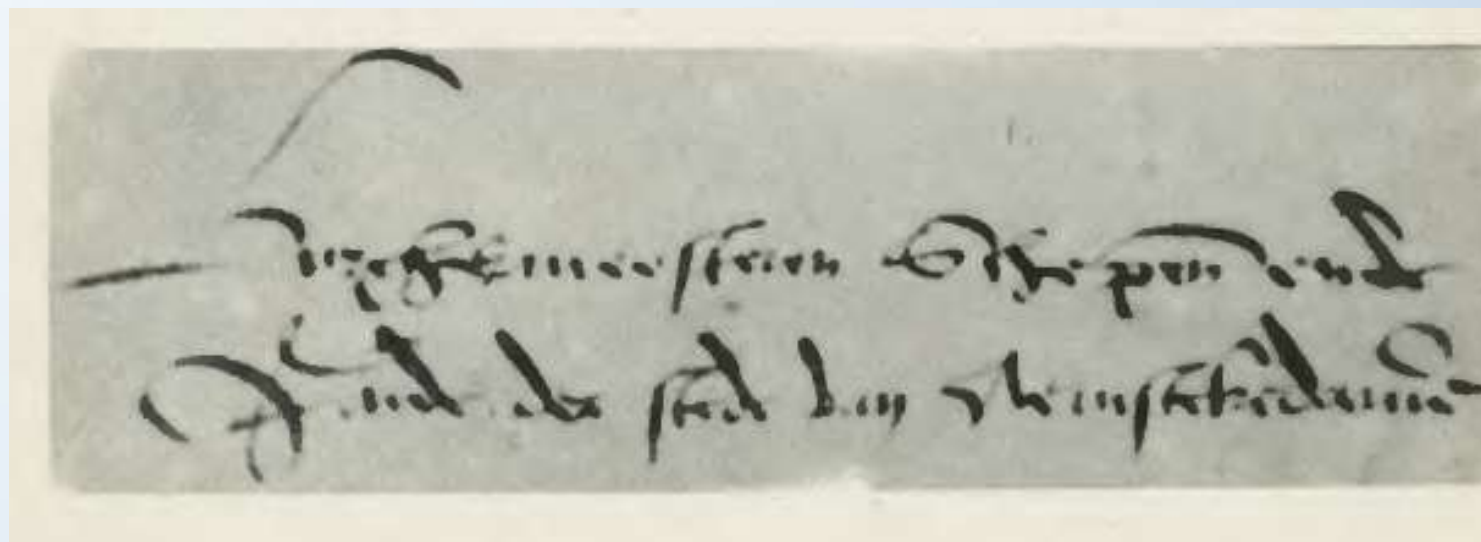 Burgermeesteren Scepen ende
Raide der stede van Aemstelredamme